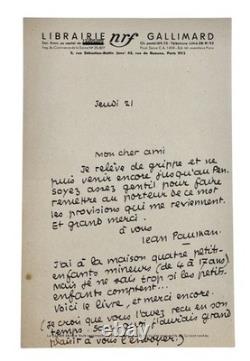 LIBRAIRIE nrf GALLIMARD
5, rue Sébastien-Bottin
Paris VII
Jeudi 21
Mon cher ami
Je relève de grippe et ne
puis venir encore jusqu'au Pen.
Soyez assez gentil pour faire
remettre au porteur de ce mot
les provisions qui me reviennent.
Et grand merci.
à vous
Jean Paulhan
J'ai à la maison quatre petits-
enfants mineurs (de 4 à 17 ans)
Mais je ne sais trop si les petits-
enfants comptent...
Voici le livre, et merci encore.
(Je crois que vous l'avez reçu en son
temps. Sinon, j'aurais grand
plaisir à vous l'envoyer.)
ebay